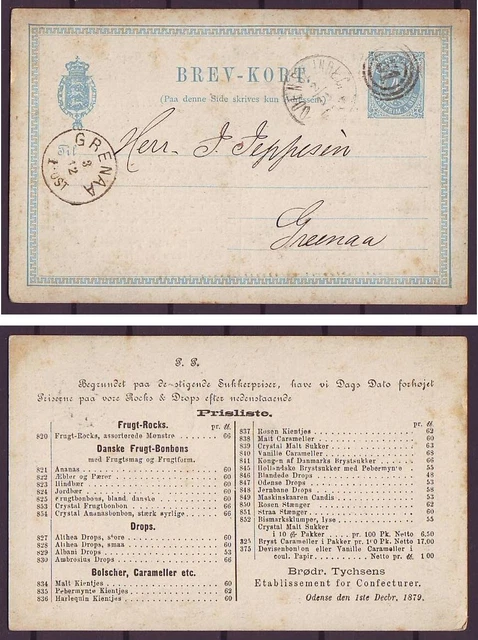 BREV-KORT
(Paa denne Side skrives kun Adressen)
GRENAA
3
12
I POST
Herr J. Jeppesen
Greenaa
P. P.
Begrundet paa de stigende Sukkerpriser, have vi Dags Dato forhøjet
Priserne paa vore Rocks & Drops efter nedenstaaende
Prisliste.
Frugt-Rocks. pr. ℔.
820 Frugt-Rocks, assorterede Mønstre 66
Danske Frugt-Bonbons
med Frugtsmag og Frugtform.
821 Ananas 60
822 Æbler og Pærer 60
823 Hindbær 60
824 Jordbær 60
825 Frugtbonbons, bland. danske 60
853 Crystal Frugtbonbon 66
854 Crystal Ananasbonbon, stærk syrlige 66
Drops.
827 Althea Drops, store 60
828 Althea Drops, smaa 60
829 Albani Drops 53
830 Ambrosius Drops 66
Bolscher, Carameller etc.
834 Malt Kientjes 60
835 Pebermynte Kientjes 62
836 Harlequin Kientjes 60
pr. ℔.
837 Rosen Kientjes 62
838 Malt Carameller 60
839 Crystal Malt Sukker 63
840 Vanille Carameller 68
841 Kongen af Danmarks Brystsukker 66
845 Hollandske Brystsukker med Pebermynte 55
846 Blandede Drops 48
847 Odense Drops 53
848 Jernbane Drops 58
849 Maskinskaaren Candis 53
850 Rosen Stænger 62
851 Straa Stænger 60
852 Bismarksklumper, lyse 55
Crystal Malt Sukker
i 10 Pakker pr. 100 Pk. Netto 6,50
Bryst Carameller i Pakker pr. 100 Pk. Netto 17,00
375 Devisenbonbon eller Vanille Carameller i
coul. Papir Netto pr. ℔. 1 00
Brødr. Tychsens
Etablissement for Confecturer.
Odense den 1ste Decbr. 1879.